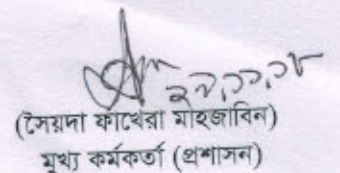 ২৭.১১.১৮
(সৈয়দা ফাখেরা মাহজাবিন)
মুখ্য কর্মকর্তা (প্রশাসন)